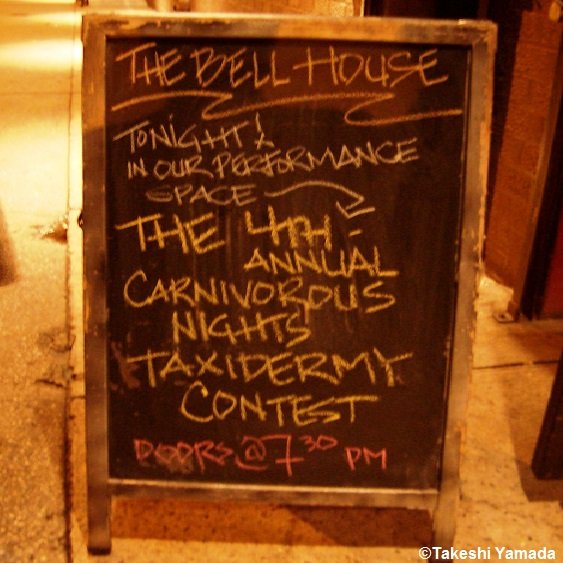 THE BELL HOUSE
TONIGHT!
IN OUR PERFORMANCE
SPACE
THE 4TH
ANNUAL
CARNIVOROUS
NIGHTS
TAXIDERMY
CONTEST
DOORS @ 7 30 PM
©Takeshi Yamada